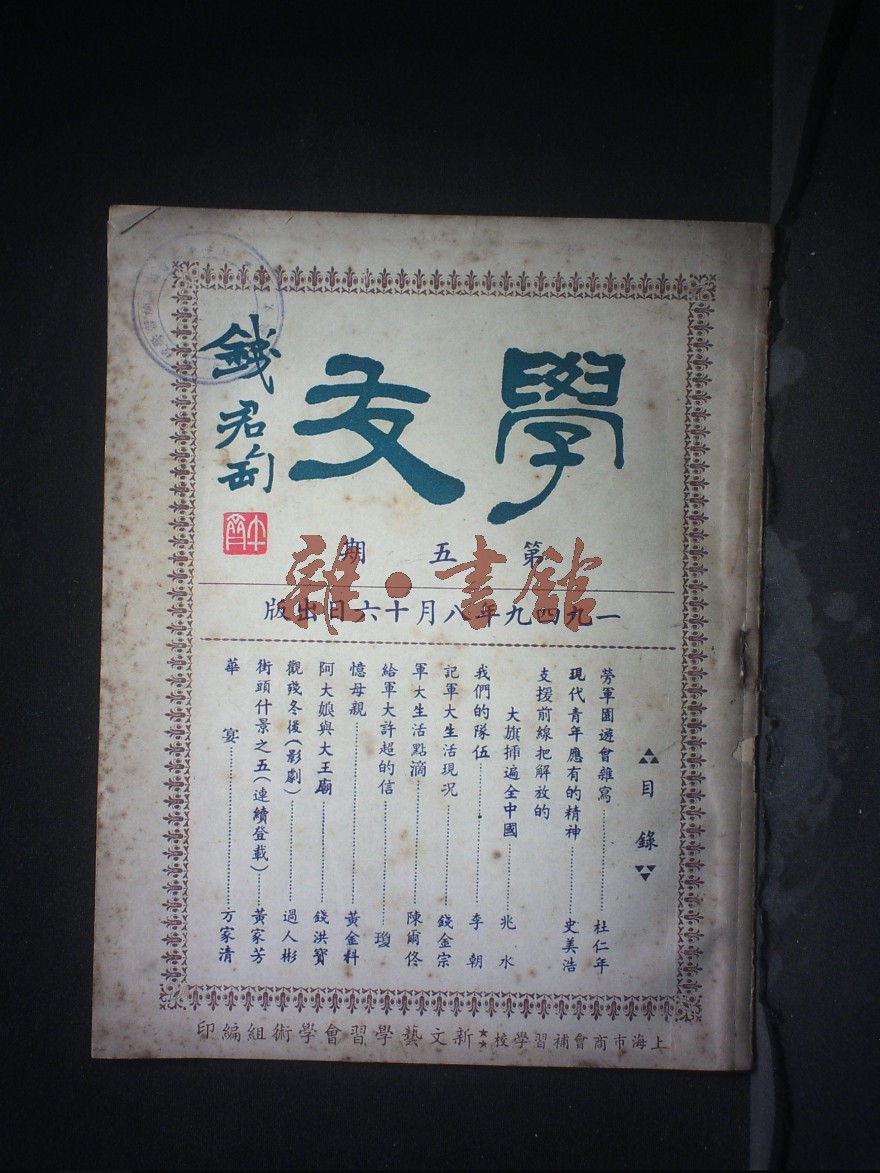 學友
錢君匋
第五期
雜·書館
一九四九年八月十六日出版
目錄
勞軍園遊會雜寫 杜仁年
現代青年應有的精神 史美浩
支援前線把解放的
大旗揷遍全中國 兆水
我們的隊伍 李朝
記軍大生活現况 錢金宗
軍大生活點滴 陳爾佟
給軍大許超的信 瓊
憶母親 黃金料
阿大娘與大王廟 錢洪寶
觀殘冬後(影劇) 過人彬
街頭什景之五(連續登載) 黃家芳
華宴 方家清
上海市商會補習學校★★新文藝學習會學術組編印